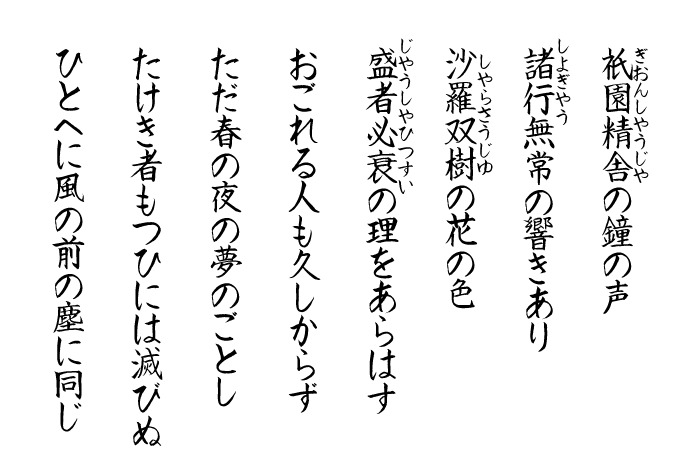 祇園精舎の鐘の声
ぎおんしやうじや
諸行無常の響きあり
しよぎやう
沙羅双樹の花の色
しやらさうじゆ
盛者必衰の理をあらはす
じやうしやひつすい
おごれる人も久しからず
ただ春の夜の夢のごとし
たけき者もつひには滅びぬ
ひとへに風の前の塵に同じ